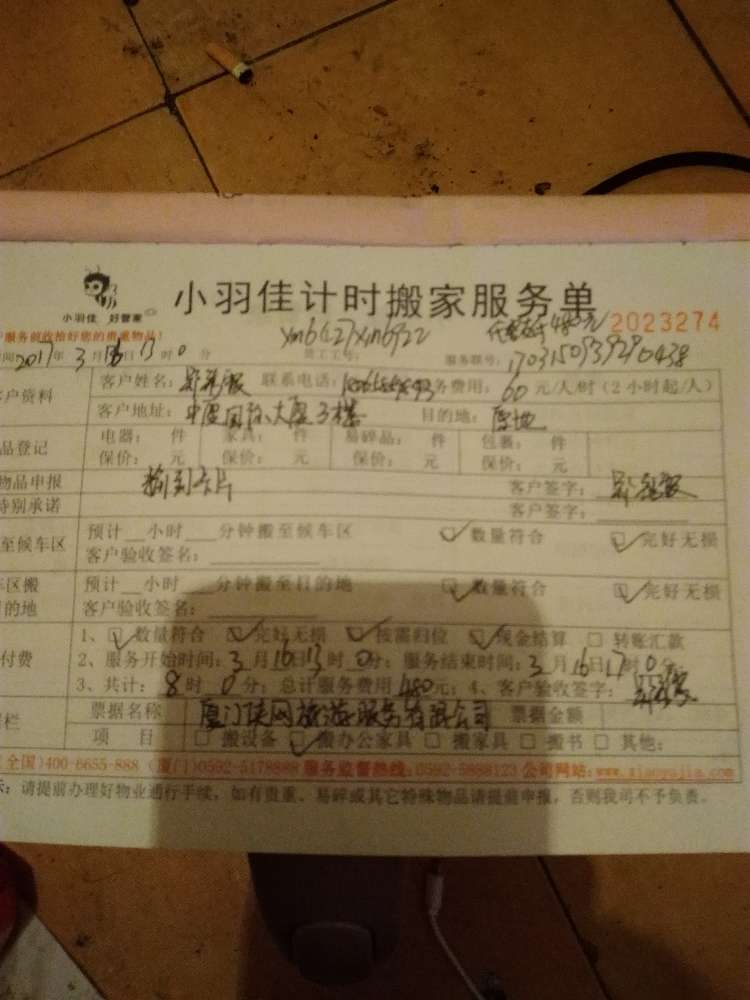 小羽佳计时搬家服务单
小羽佳 好管家
服务前收拾好您的贵重物品！
2023274
xm6127xm6922
480元
2017年3月16日13时0分 员工工号： 服务联号：
客户资料 客户姓名： 联系电话： 服务费用：60元/人/时（2小时起/人）
客户地址：中厦国际大厦3楼 目的地：原地
品登记 电器： 件 家具： 件 易碎品： 件 包裹： 件
保价： 元 保价： 元 保价： 元 保价： 元
物品申报 卡片 客户签字：
特别承诺 客户签字：
至候车区 预计__小时__分钟搬至候车区 数量符合 完好无损
客户验收签名：
车区搬 预计__小时__分钟搬至目的地 数量符合 完好无损
目的地 客户验收签名：
付费 1、数量符合 完好无损 按需归位 现金结算 转账汇款
2、服务开始时间：3月16日13时0分；服务结束时间：3月16日17时0分
3、共计：8时0分；总计服务费用480元；4、客户验收签字：
栏 票据名称 厦门侠网旅游服务有限公司 票据金额
项 目 搬设备 搬办公家具 搬家具 搬书 其他：
（全国)400-6655-888 (厦门)0592-5178888 服务监督热线：0592-5888123 公司网站：www.xiaoyujia.com
示：请提前办理好物业通行手续，如有贵重、易碎或其它特殊物品请提前申报，否则我司不予负责。